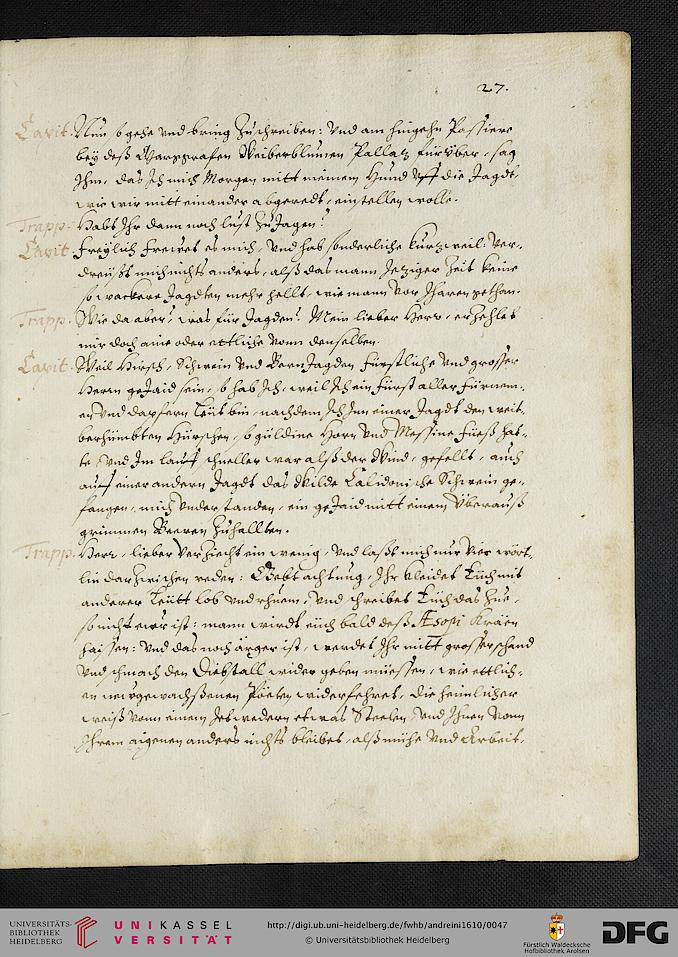 27.
Capit. Nun so gehe vnd bring Zuschreiben: Vnd am hingehn Passiere
beÿ deß Marggrafen Weiberblumen Pallatz fürÿber, sag
Ihm, das Ich mich Morgen mitt meinem Hund vff die Jagdt,
wie wir mitt einander abgeredt, einstellen wolle.
Trapp. Habt Ihr dann noch lust Zu Jagen?
Capit. Freÿlich frewet es mich, Vnd hab sonderliche kurtzweil: Ver-
dreüsst mich nichts anders, alß das mann Jetziger Zeit keine
so wackere Jagdten mehr hellt, wie mann vor Jharen gethan.
Trapp. Wie da aber? was für Jagden? Mein lieber Herr, erzehlet
mir doch aine oder ettliche vonn denselben.
Capit. Weil Hirsch, Schwein vnd Bern Jagden fürstliche vnd grosser
Herrn geJaid sein, so hab Ich, weil Ich ein fürst aller fürnem-
en vnd dapfern Leüt bin, nachdem Ich Inn einer Jagdt den weit-
berhümbten Hürschen, so güldine Horn vnd Messine füeß hat-
te, vnd Im lauf schneller war alß der Wind, gefellt, auch
auf einer andern Jagdt das Wilde Calidonische Schwein ge-
fangen, mich vnderstanden, ein geJaid mitt einem Vberauß
grimmen Beeren Zuhallten.
Trapp. Herr, lieber verziecht ein wenig, Vnd laßt mich nur Vier wört-
lin darzwischen reden: Gebt achtung, Ihr kleidet Eüch mit
anderer Leütt lob vnd rhuem, Vnd schreibet Eüch das Zue,
so nicht ewr ist: mann wirdt eüch bald deß Æsopi Kräen
haissen: Vnd das noch ärger ist, werdet Ihr mitt grosser schand
vnd schmach den Diebstall wider geben müessen, wie ettlich-
en newgewachsenen Poeten widerfehret, die heimlicher
weiß vonn einem Jetwedern etwas Steelen, vnd Ihnen vonn
Ihrem aigenen anders nichts bleibet, alß mühe vnd Arbeit.
UNIVERSITÄTS-
BIBLIOTHEK
HEIDELBERG
UNI KASSEL
VERSITÄT
http://digi.ub.uni-heidelberg.de/fwhb/andreini1610/0047
© Universitätsbibliothek Heidelberg
Fürstlich Waldecksche
Hofbibliothek Arolsen
DFG